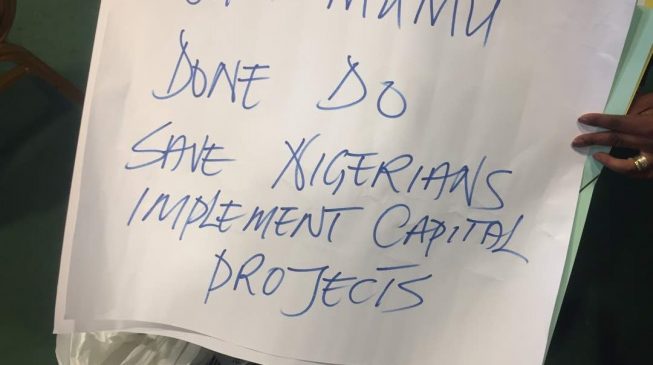 MUMU
DONE DO
SAVE NIGERIANS
IMPLEMENT CAPITAL
PROJECTS